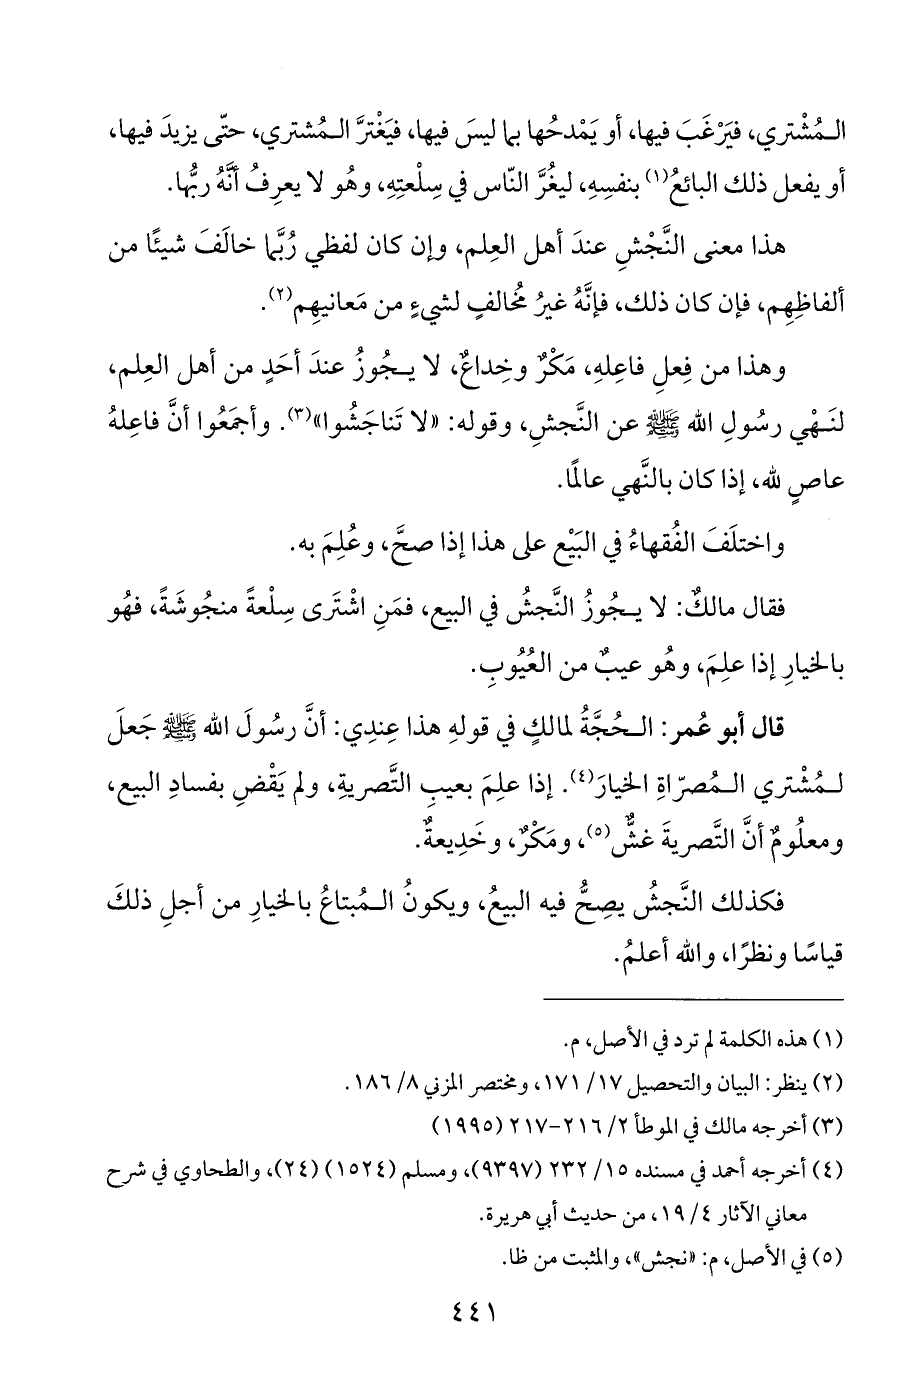 الـمُشْتري، فيَرْغَبَ فيها، أو يَمْدحُها بما ليسَ فيها، فيَغْترَّ الـمُشتري، حتّى يزيدَ فيها،
أو يفعل ذلك البائعُ(١) بنفسِهِ، ليغُرَّ النّاس في سِلْعتِهِ، وهُو لا يعرِفُ أنَّهُ ربُّها.
هذا معنى النَّجْشِ عندَ أهل العِلم، وإن كان لفظي رُبَّما خالَفَ شيئًا من
ألفاظِهِم، فإن كان ذلك، فإنَّهُ غيرُ مُخالفٍ لشيءٍ من مَعانيهِم(٢).
وهذا من فِعلِ فاعِلهِ، مَكْرٌ وخِداعٌ، لا يـجُوزُ عندَ أحَدٍ من أهل العِلم،
لنَـهْي رسُولِ الله ﷺ عن النَّجشِ، وقوله: «لا تَناجَشُوا»(٣). وأجمَعُوا أنَّ فاعِلهُ
عاصٍ لله، إذا كان بالنَّهي عالمًا.
واختلَفَ الفُقهاءُ في البَيْع على هذا إذا صحَّ، وعُلِمَ به.
فقال مالكٌ: لا يـجُوزُ النَّجشُ في البيع، فمَنِ اشْتَرى سِلْعةً منجُوشَةً، فهُو
بالخيارِ إذا علِمَ، وهُو عيبٌ من العُيُوبِ.
قال أبو عُمر: الـحُجَّةُ لمالكٍ في قولهِ هذا عِندِي: أنَّ رسُولَ الله ﷺ جَعلَ
لـمُشْتري الـمُصرّاةِ الخيارَ(٤). إذا علِمَ بعيبِ التَّصريةِ، ولم يَقْضِ بفسادِ البيع،
ومعلُومٌ أنَّ التَّصريةَ غشٌّ(٥)، ومَكْرٌ، وخَدِيعةٌ.
فكذلك النَّجشُ يصِحُّ فيه البيعُ، ويكونُ الـمُبتاعُ بالخيارِ من أجلِ ذلكَ
قياسًا ونظرًا، والله أعلمُ.
(١) هذه الكلمة لم ترد في الأصل، م.
(٢) ينظر: البيان والتحصيل ١٧/ ١٧١، ومختصر المزني ٨/ ١٨٦.
(٣) أخرجه مالك في الموطأ ٢/ ٢١٦-٢١٧ (١٩٩٥)
(٤) أخرجه أحمد في مسنده ١٥/ ٢٣٢ (٩٣٩٧)، ومسلم (١٥٢٤) (٢٤)، والطحاوي في شرح
معاني الآثار ٤/ ١٩، من حديث أبي هريرة.
(٥) في الأصل، م: «نجش»، والمثبت من ظا.
٤٤١